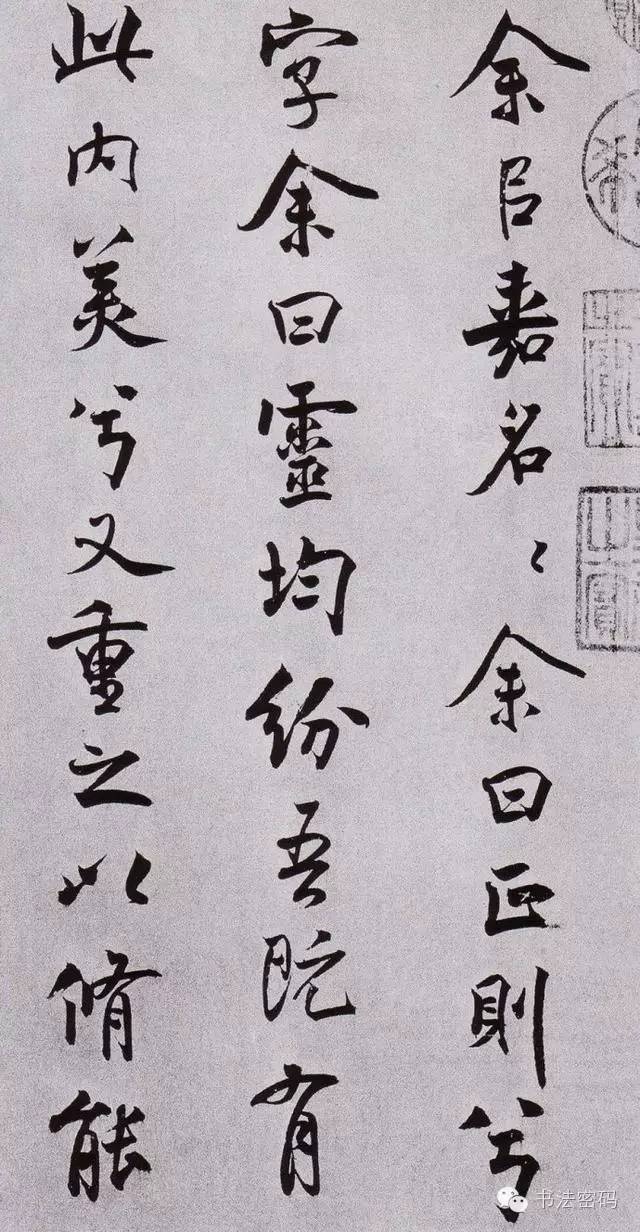 余㠯嘉名〻余曰正則兮
字余曰靈均紛吾既有
此内美兮又重之以脩能
书法密码